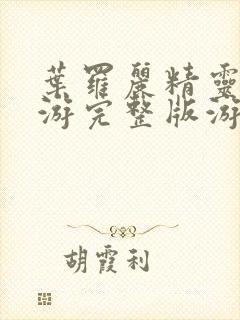 葉羅麗精靈
游完整版游
胡霞利